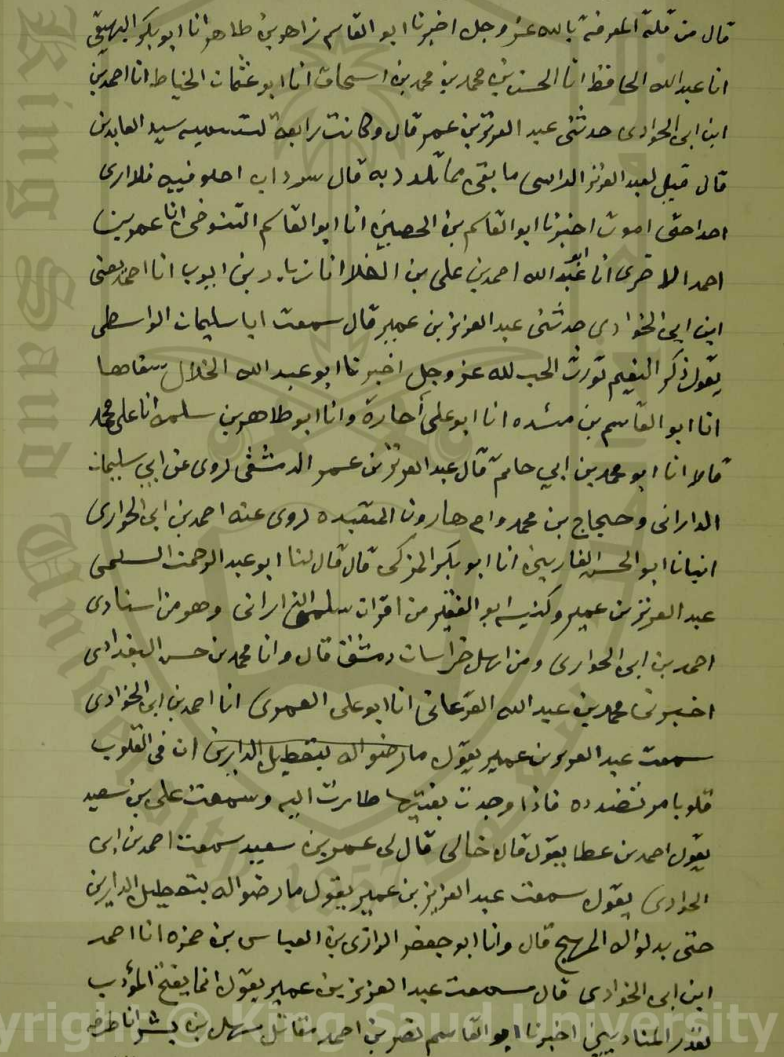 قال من قلة المعرفة بالله عز وجل اخبرنا ابو القاسم زاهر بن طاهر انا ابو بكر البيهقي
انا عبد الله الحافظ انا الحسن بن محمد بن محمد بن اسحاق انا ابو عثمان الخياط انا احمد بن
ابن ابي الحوارى حدثنى عبد العزيز بن عمير قال وكانت رابعة تسميه سيد العابدين
قال قيل لعبد العزيز الراسى ما بقى مما تلذذ به قال سرداب اخلو فيه فلا ارى
احدا حتى اموت اخبرنا ابو القاسم بن الحصين انا ابو القاسم التنوخى انا عمر بن
احمد الاخرى انا ابو عبد الله احمد بن على بن العلا انا زياد بن ايوب انا احمد يعنى
ابن ابي الحوارى حدثنى عبد العزيز بن عمير قال سمعت ابا سليمان الواسطى
يقول ذكر النعيم تورث الحب لله عز وجل اخبرنا ابو عبد الله الخلال شفاها
انا ابو القاسم بن منده انا ابو على أجازة وانا ابو طاهر بن سلمه انا على محمد
قالا انا ابو محمد بن ابي حاتم قال عبد العزيز بن عمر الدمشقى روى عن ابي سليمان
الدارانى وحجاج بن محمد وام هارون المتعبده روى عنه احمد بن ابي الحوارى
انبانا ابو الحسن الفارسي انا ابو بكر المزكى قال قال لنا ابو عبد الرحمن السلمى
عبد العزيز بن عمير وكنيته ابو الفقير من اقران سلمى الدارانى وهو من استادى
احمد بن ابي الحوارى ومن اهل خراسان دمشق قال وانا محمد بن حسن البغدادى
اخبرنى محمد بن عبد الله الفرغانى انا ابو على انا احمد بن ابي الحوادى
سمعت عبد العزيز بن عمير يقول ما رضوا له بتعطيل الدارين ان فى القلوب
قلوبا فاذا وجدت بغيتها طارت اليه وسمعت على بن سعيد
يقول احمد بن عطا يقول قال خالى قال لى عمر بن سعيد سمعت احمد بن ابي
الحوادى يقول سمعت عبد العزيز بن عمير يقول ما رضوا له بتعطيل الدارين
حتى بدلوا له المهج قال وانا ابو جعفر الرازى بن العباس بن حمزه انا احمد
ابن ابي الحوادى قال سمعت عبد العزيز بن عمير يقول انما يفتح المؤدب
بقدر المتادبين اخبرنا ابو القاسم نصر بن احمد مقاتل سهل بن بشر انا طرفه
Copyright © King Saud University
King Saud University
1957